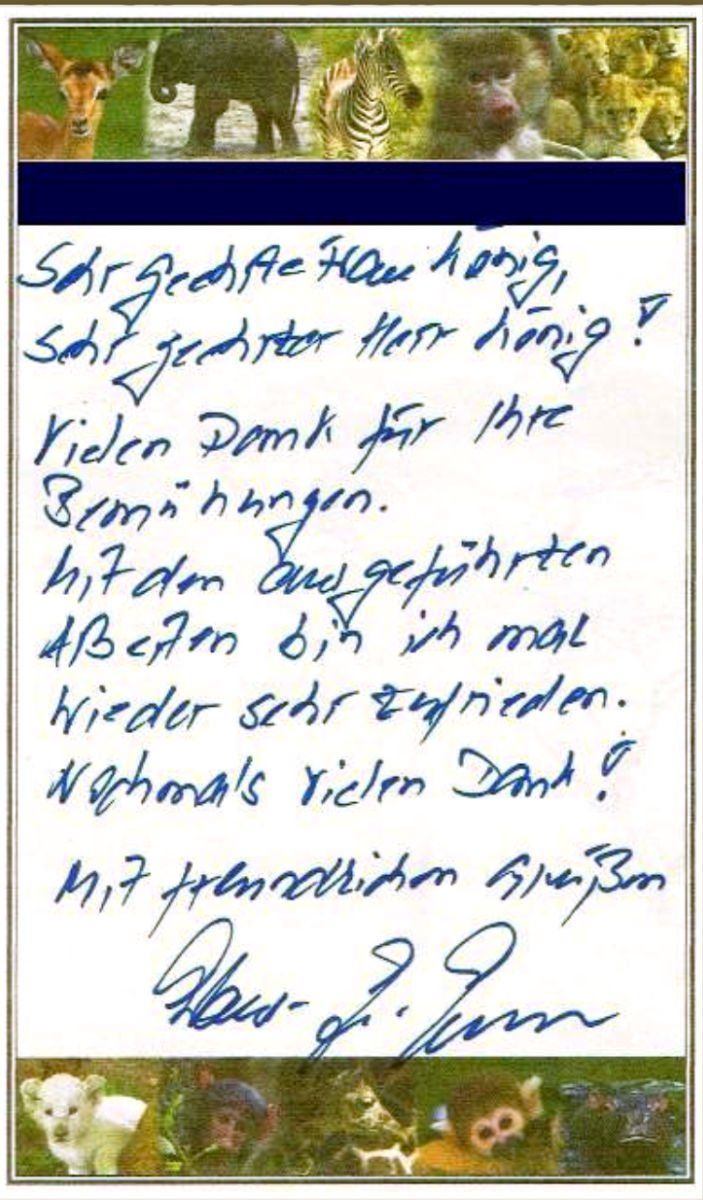 Sehr geehrte Frau König,
Sehr geehrter Herr König!
Vielen Dank für Ihre
Bemühungen.
Mit den ausgeführten
Arbeiten bin ich mal
wieder sehr zufrieden.
Nochmals vielen Dank!
Mit freundlichen Grüßen